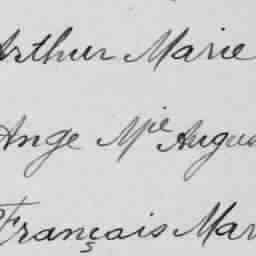 Arthur Marie
Ange Mie Augus
François Mar